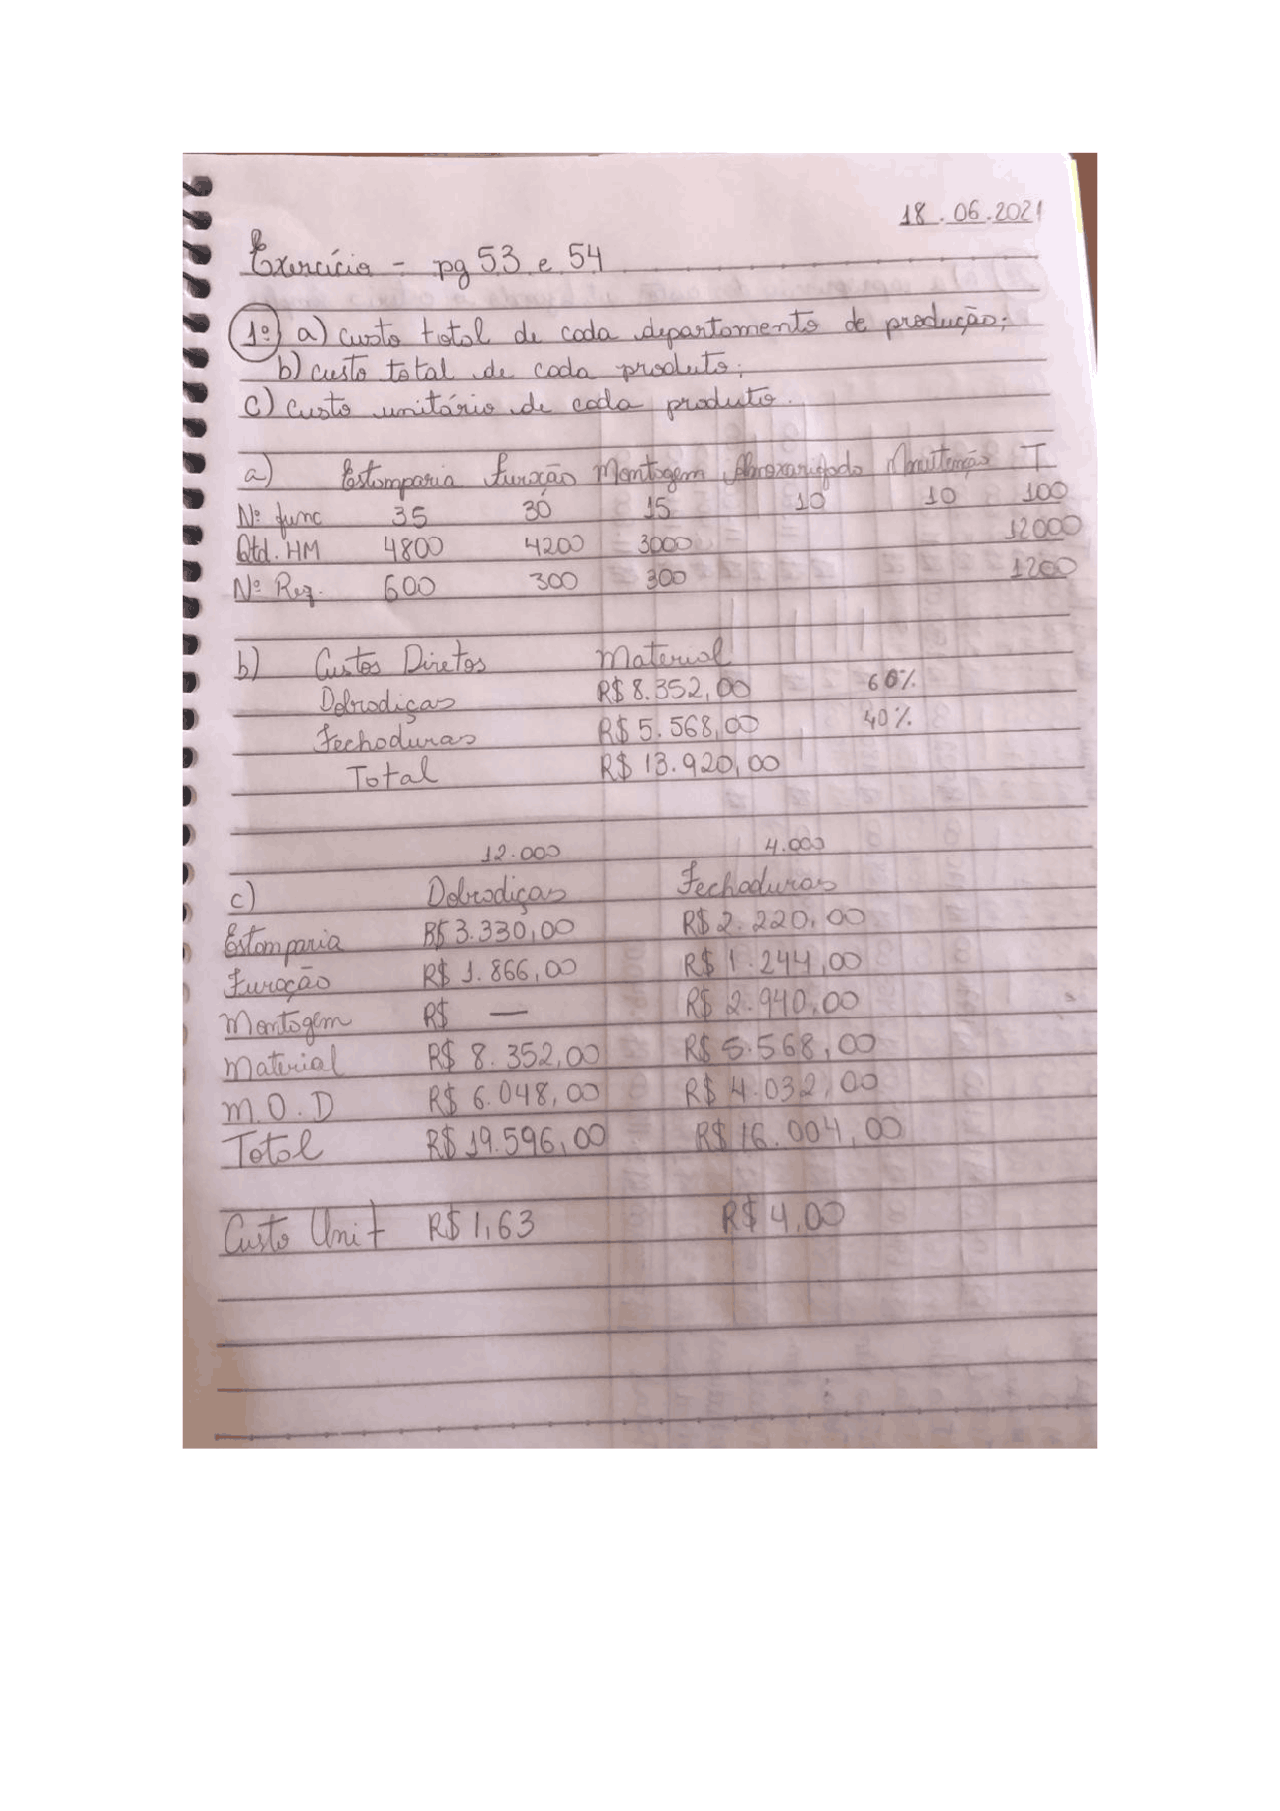 18.06.2021
Exercício - pg 53 e 54
1º) a) custo total de cada departamento de produção;
b) custo total de cada produto;
c) custo unitário de cada produto.
a) Estamparia Furação Montagem Almoxarifado Manutenção T
Nº func 35 30 15 10 10 100
Qtd. HM 4800 4200 3000 12000
Nº Req. 600 300 300 1200
b) Custos Diretos Material
Dobradiças R$ 8.352,00 60%
Fechaduras R$ 5.568,00 40%
Total R$ 13.920,00
12.000 4.000
c) Dobradiças Fechaduras
Estamparia R$ 3.330,00 R$ 2.220,00
Furação R$ 1.866,00 R$ 1.244,00
Montagem R$ — R$ 2.940,00
Material R$ 8.352,00 R$ 5.568,00
M.O.D R$ 6.048,00 R$ 4.032,00
Total R$ 19.596,00 R$ 16.004,00
Custo Unit R$ 1,63 R$ 4,00